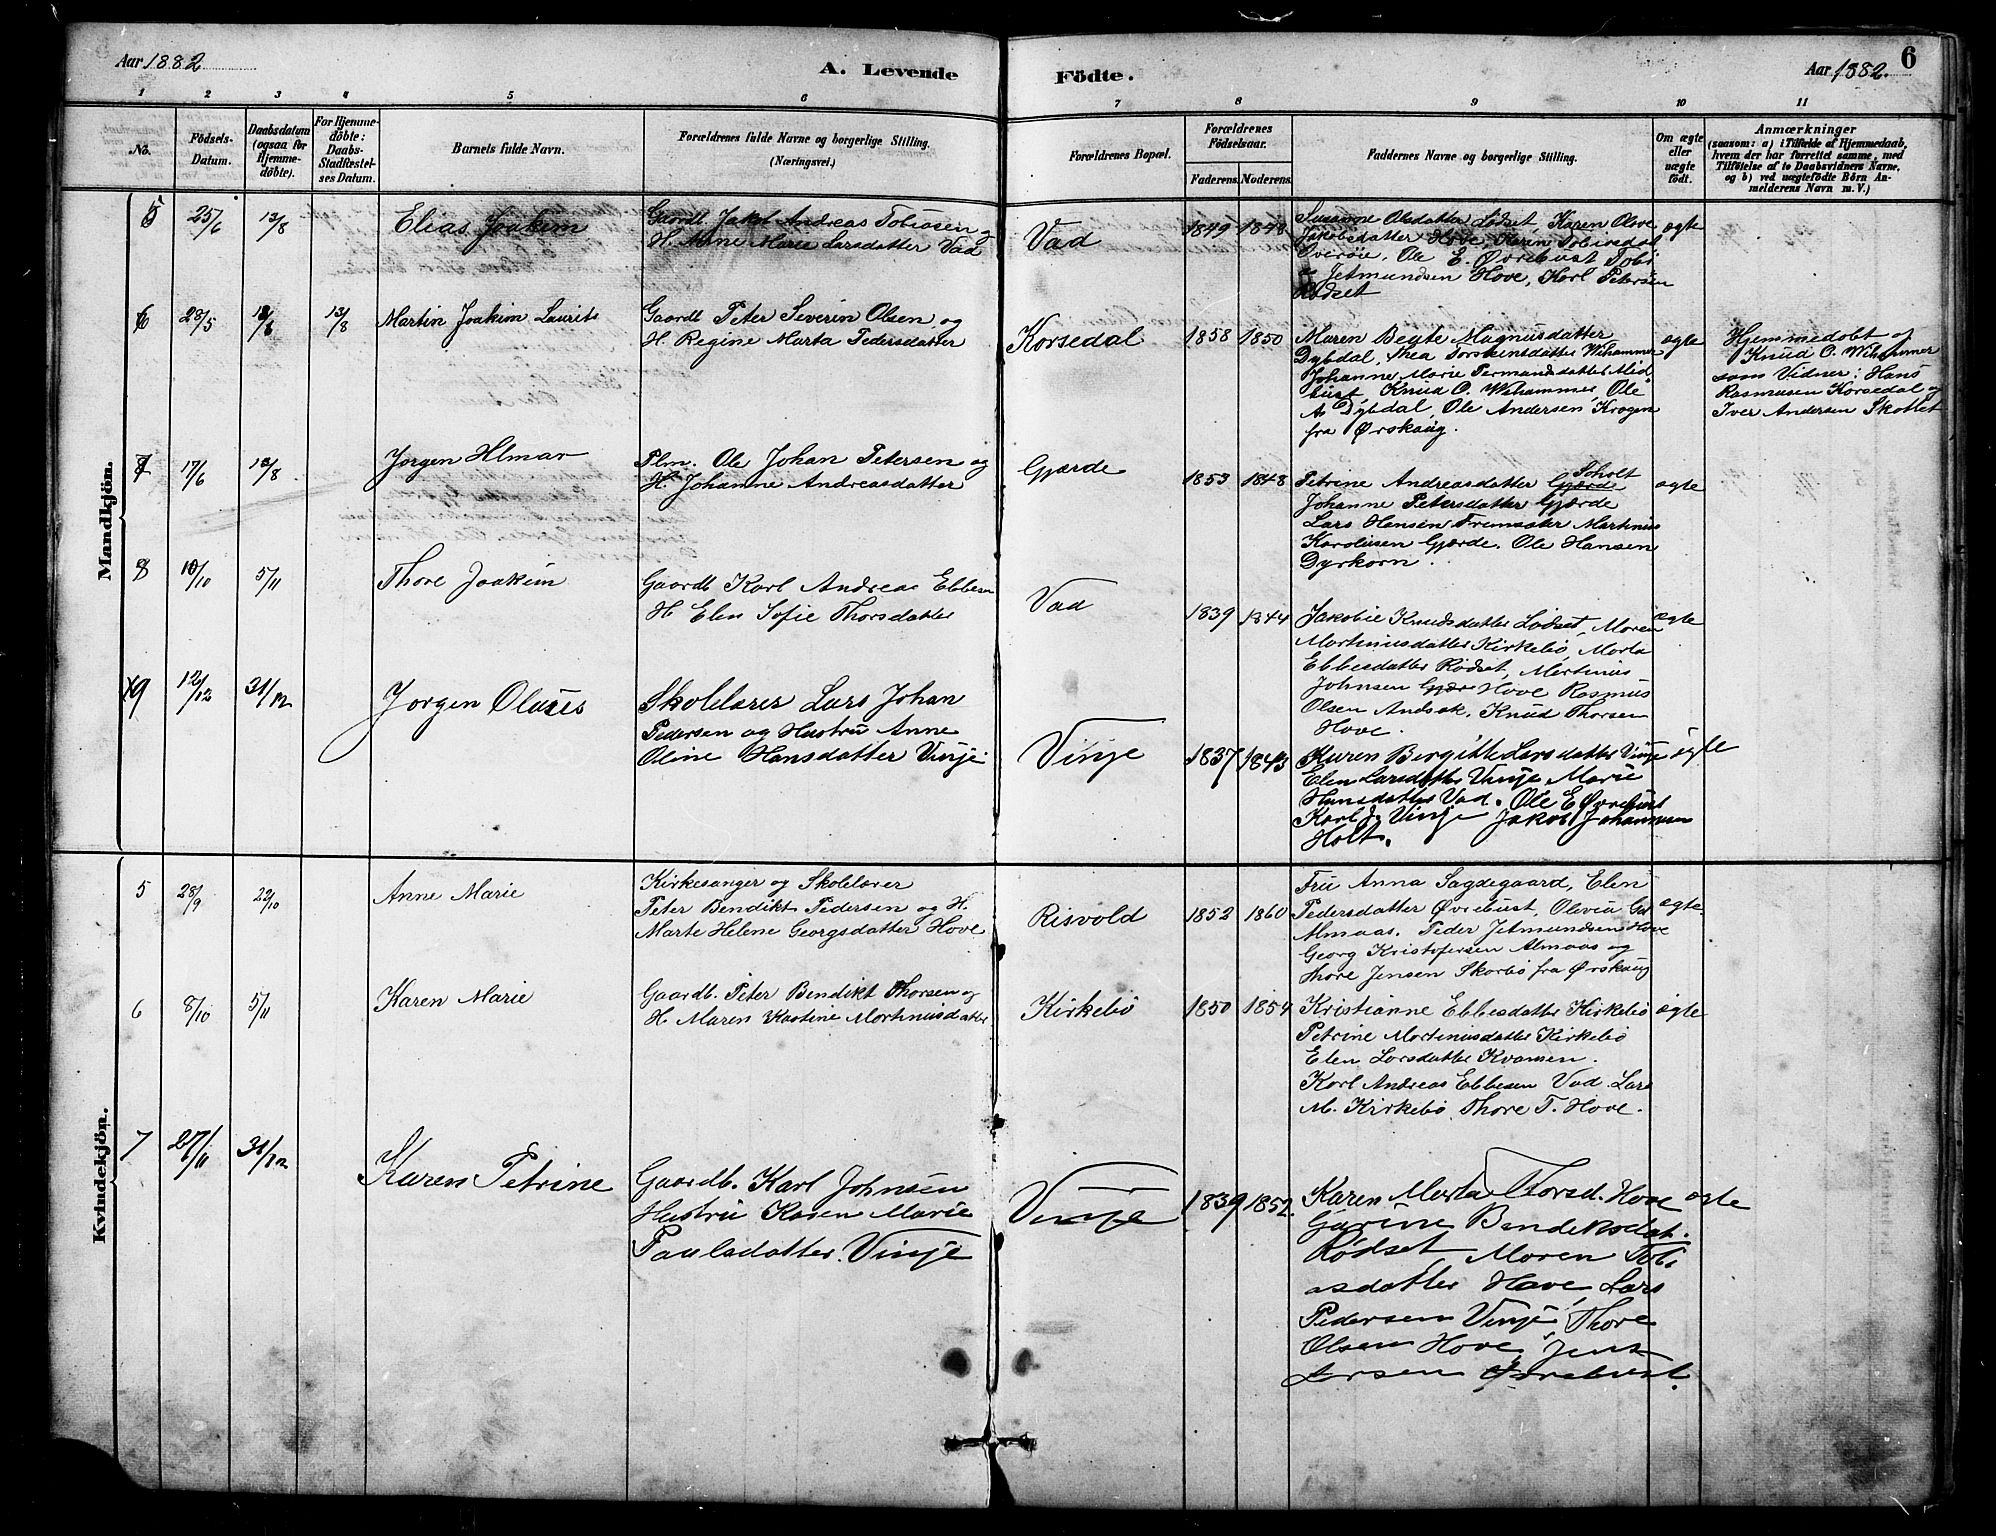 Aar 1882
A. Levende
Födte.
Aar 1882.
6
1
2
3
4
5
6
7
8
9
10
11
No.
Födsels-
Datum.
Daabsdatum
(ogsaa for
Hjemme-
döbte).
For Hjemme-
döbte:
Daabs-
Stadfæstel-
ses Datum.
Barnets fulde Navn.
Forældrenes fulde Navne og borgerlige Stilling.
(Næringsvei.)
Forældrenes Bopæl.
Forældrenes
Födselsaar.
Faderens.
Moderens.
Faddernes Navne og borgerlige Stilling.
Om ægte
eller
uægte
födt.
Anmærkninger
(saasom: a) i Tilfælde af Hjemmedaab,
hvem der har forrettet samme, med
Tilföielse af to Daabsvidners Navne,
og b) ved uægtefödte Börn An-
melderens Navn m. V.)
Mandkjön.
5
25/6
13/8
Elias Joakim
Gaardb. Jakob Andreas Tobiasen og
H. Anne Marie Larsdatter Vad
Vad
1849
1848
Susanne Olsdatter Lödset, Karen Olave
Jakobsdatter Hove, Karen Tobiasdat
Overöie, Ole E. Øvrebust Tobi
as Jetmundsen Hove, Karl Petersen
Rödset
ægte
6
28/5
13/8
13/8
Martin Joakim Laurits
Gaardb. Peter Severin Olsen og
H. Regine Marta Pedersdatter
Korsedal
1858
1850
Maren Beate Magnusdatter
Dybdal, Thea Torstensdatter Wihammer
Johanne Marie Permandsdatter Med
bust, Knud O. Wihammer, Ole
A. Dybdal, Ole Andersen Krogen
fra Ørskoug.
ægte
Hjemmedobt af
Knud O. Wihammer
som Vidner: Hans
Rasmusen Korsedal og
Iver Andersen Skottet
7
17/6
13/8
Jorgen Hlmar
Plm. Ole Johan Petersen og
H. Johanne Andreasdatter
Gjærde
1853
1848
Soholt
Petrine Andreasdatter Gjærde
Johanne Petersdatter Gjærde
Lars Hansen Fremsæter Martinus
Karolusen Gjærde. Ole Hansen
Dyrkorn.
ægte
8
10/10
5/11
Thore Joakim
Gaardb Karl Andreas Ebbesen
H Elen Sofie Thorsdatter
Vad
1839
1844
Jakobie Knudsdatter Lödset, Maren
Martinusdatter Kirkebö, Marta
Ebbesdatter Rödset, Martinus
Johnsen Hove Rasmus
Olsen Andsok, Knud Thorsen
Hove.
ægte
9
12/12
31/12
Jorgen Oluses
Skolelærer Lars Johan
Pedersen og Hustru Anne
Oline Hansdatter Vinje
Vinje
1837
1843
Karen Bergitte Larsdatter Vinje
Elen Larsdatter Vinje Marie
Hansdatter Vad. Ole E Øvrebust
Karl J. Vinje Jakob Johannesen
Holt.
ægte
Kvindekjön.
5
28/9
22/10
Anne Marie
Kirkesanger og Skolelærer
Peter Bendikt Pedersen og H.
Marte Helene Georgsdatter Hove
Risvold
1852
1860
Fru Anna Sagdegaard, Elen
Pedersdatter Øvrebust, Olevia Gd
Almaas. Peder Jetmundsen Hove
Georg Kristofersen Almaas og
Thore Jensen Skorbö fra Ørskoug
ægte
6
8/10
5/11
Karen Marie
Gaardb. Peter Bendikt Thorsen og
H Maren Kastine Martinusdatter
Kirkebö
1850
1854
Kristianne Ebbesdatter Kirkebö
Petrine Martinusdatter Kirkebö
Elen Larsdatter Kvamen.
Karl Andreas Ebbesen Vad Lars
M. Kirkebö, Thore T. Hove.
ægte
7
27/11
31/12
Karen Petrine
Gaardb. Karl Johnsen
Hustru Karen Marie
Paulsdatter Vinje
Vinje
1839
1852
Karen Marta Thorsd. Hove
Gurine Bendiksdat.
Rödset, Maren Tobi
asdatter Hove Lars
Pedersen Vinje Thore
Olsen Hove, Jens
Larsen Øvrebust.
ægte